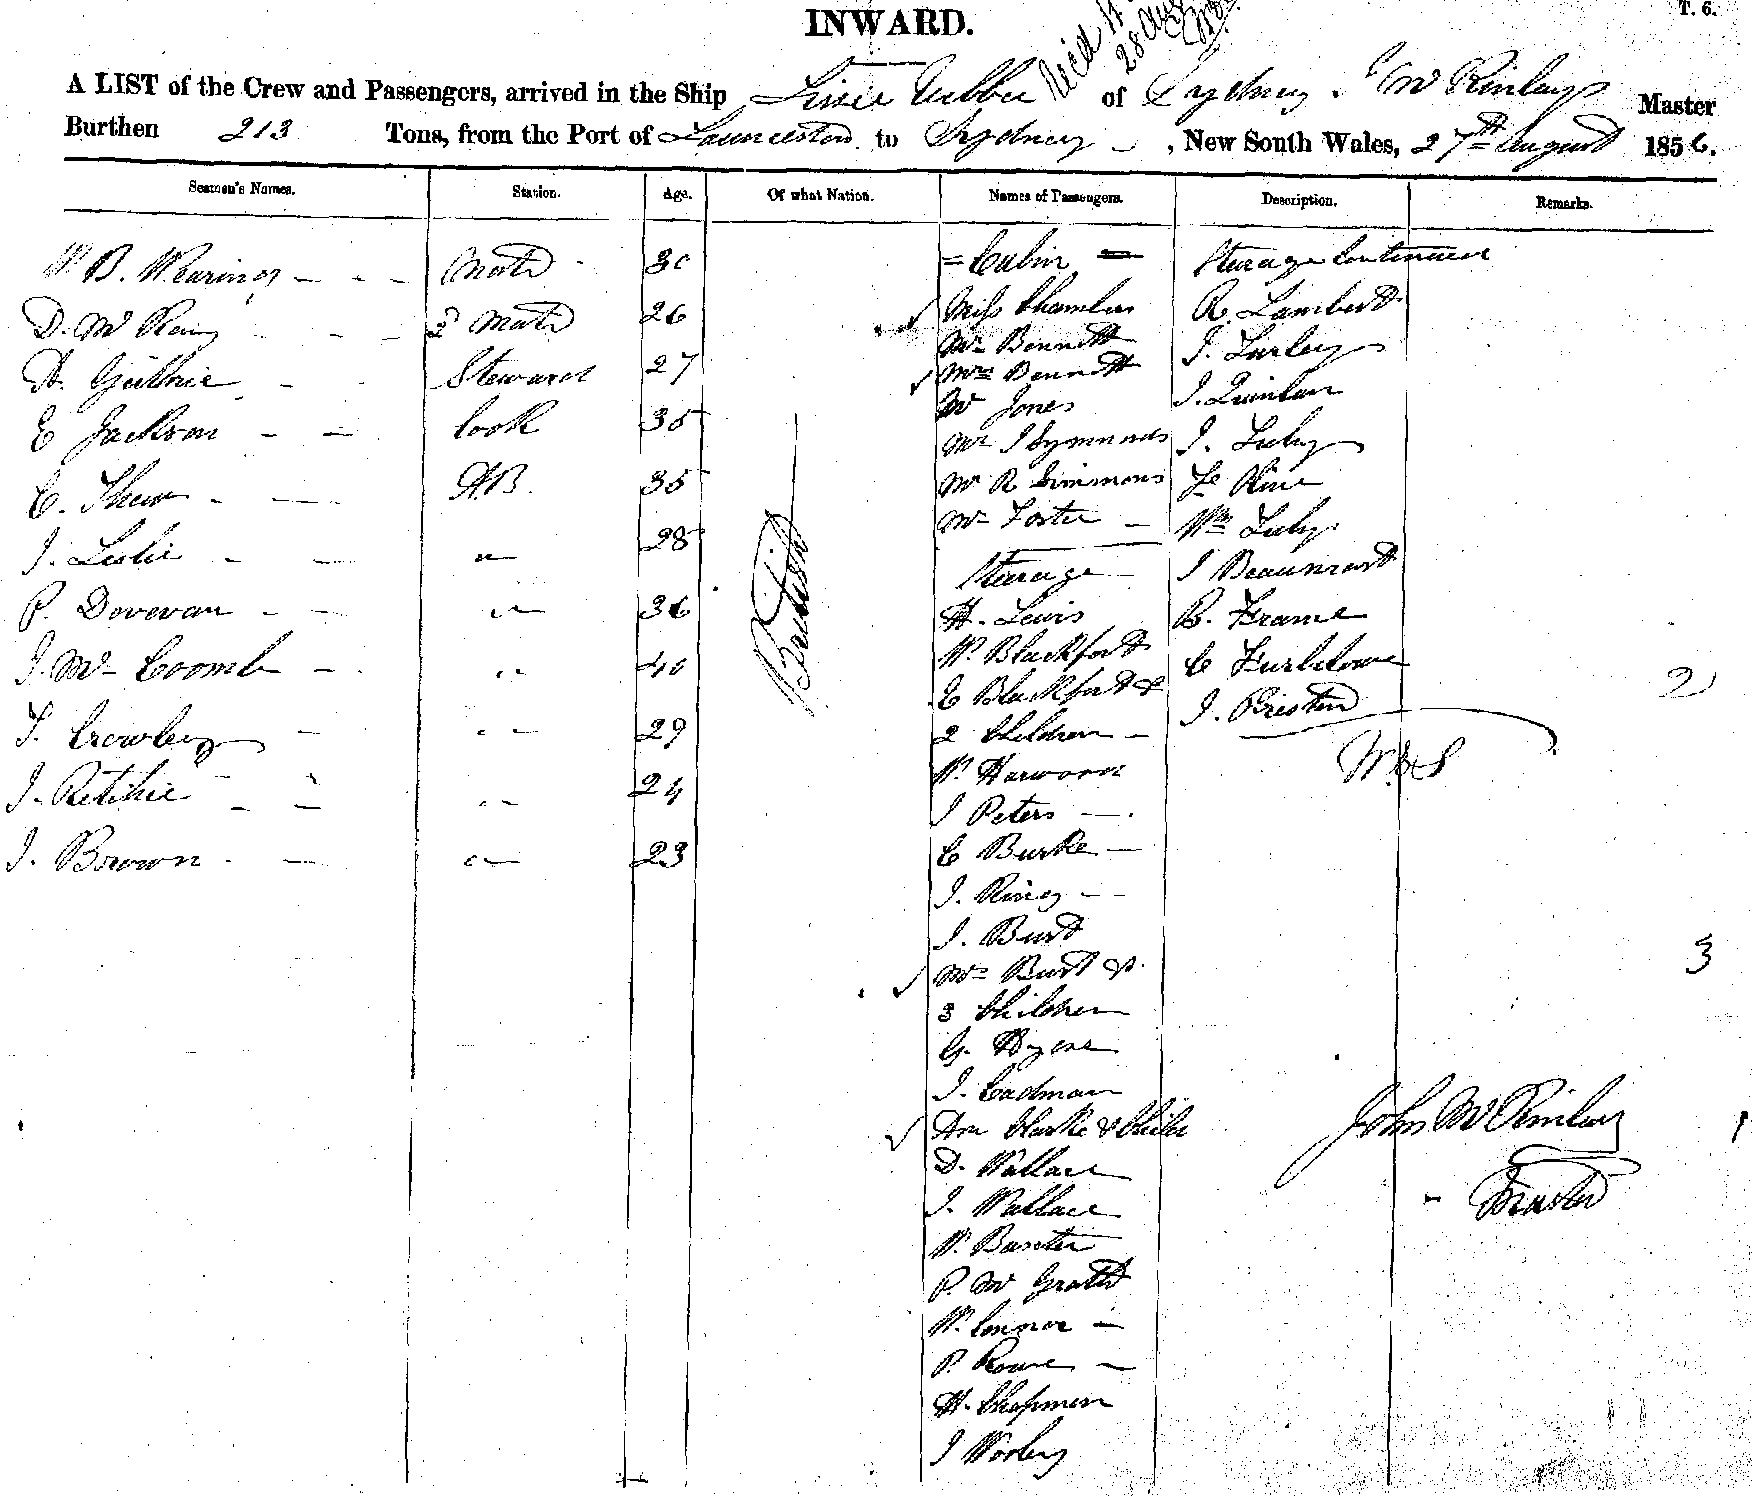 INWARD.
T. 6.
28 Aug
A LIST of the Crew and Passengers, arrived in the Ship Lizzie Webber of Sydney J McKinlay Master
Burthen 213 Tons, from the Port of Launceston to Sydney, New South Wales, 27th August 1856.
Seamen's Names. Station. Age. Of what Nation. Names of Passengers. Description. Remarks.
W. B. Waring Mate 30
D. McKay 2d Mate 26
A. Guthrie Steward 27
E Jackson Cook 35
C. Shaw AB. 35
J. Leslie " 28
P. Dovevan " 36
J. McCoomb " 40
T. Crowley " 29
J. Ritchie " 24
J. Brown " 23
British
= Cabin =
Miss Chambers
Mr Bennett
Mrs Bennett
Mr Jones
Mr J Symmons
Mr R Simmons
Mr Foster
Steerage
H. Lewis
W. Blackford
E Blackford &
2 Children
W. Harwood
J Peters
C Burke
J. King
J. Burt
Mrs Burt &
3 Children
G. Hyene
J. Cadman
Ann Clarke & Child
D. Wallace
J. Wallace
W. Baxter
P. McGrath
W. Connor
P. Rowe
H. Chapman
J Worley
Steerage Continued
R. Lambert
J. Turley
J. Quinlan
J. Luby
Wm Luby
J Beaumont
B. Frame
J. Preston
2
3
1
John McKinlay
Master